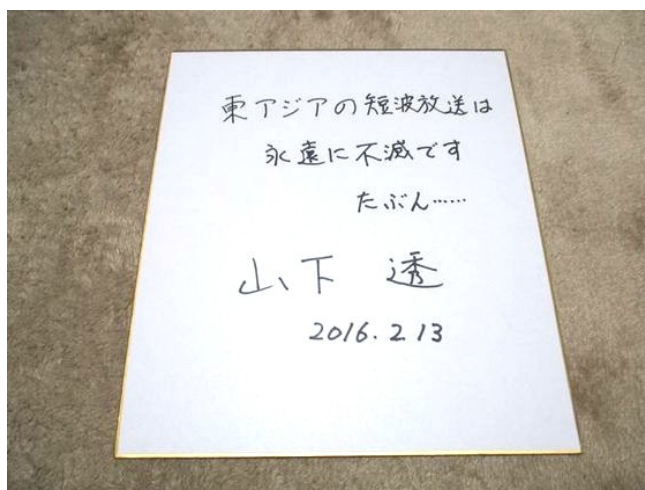 東アジアの短波放送は
永遠に不滅です
たぶん……
山下 透
2016.2.13